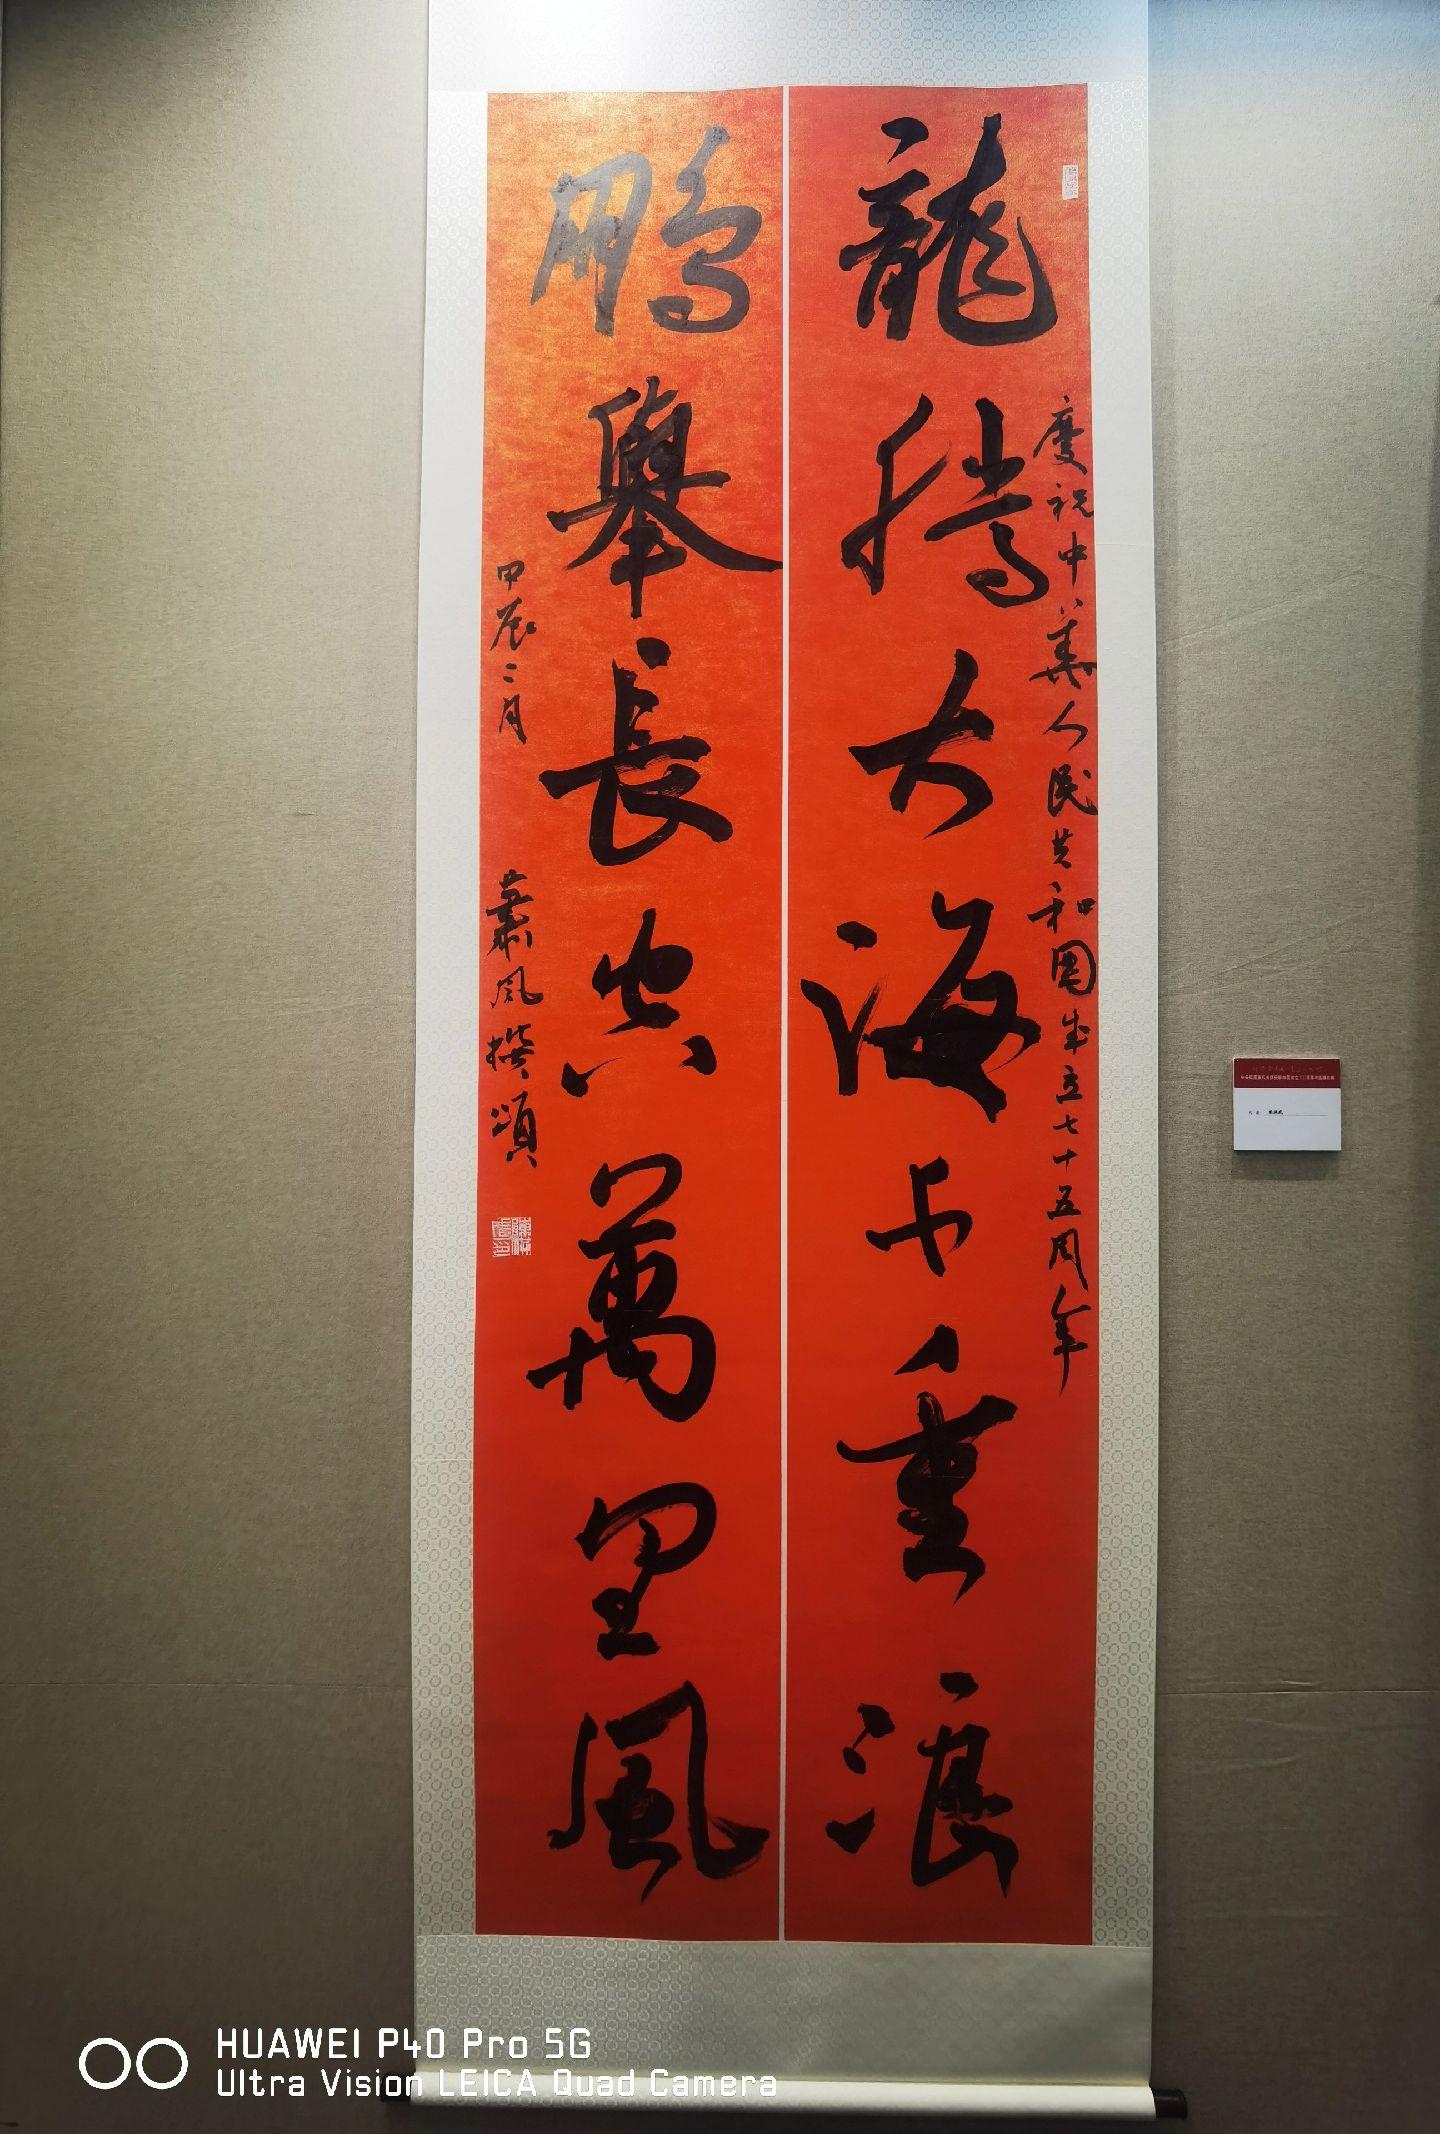 慶祝中華人民共和國成立七十五周年
龍騰大海千重浪
鵬舉長空萬里風
甲辰二月
蕭風撰頌
HUAWEI P40 Pro 5G
Ultra Vision LEICA Quad Camera